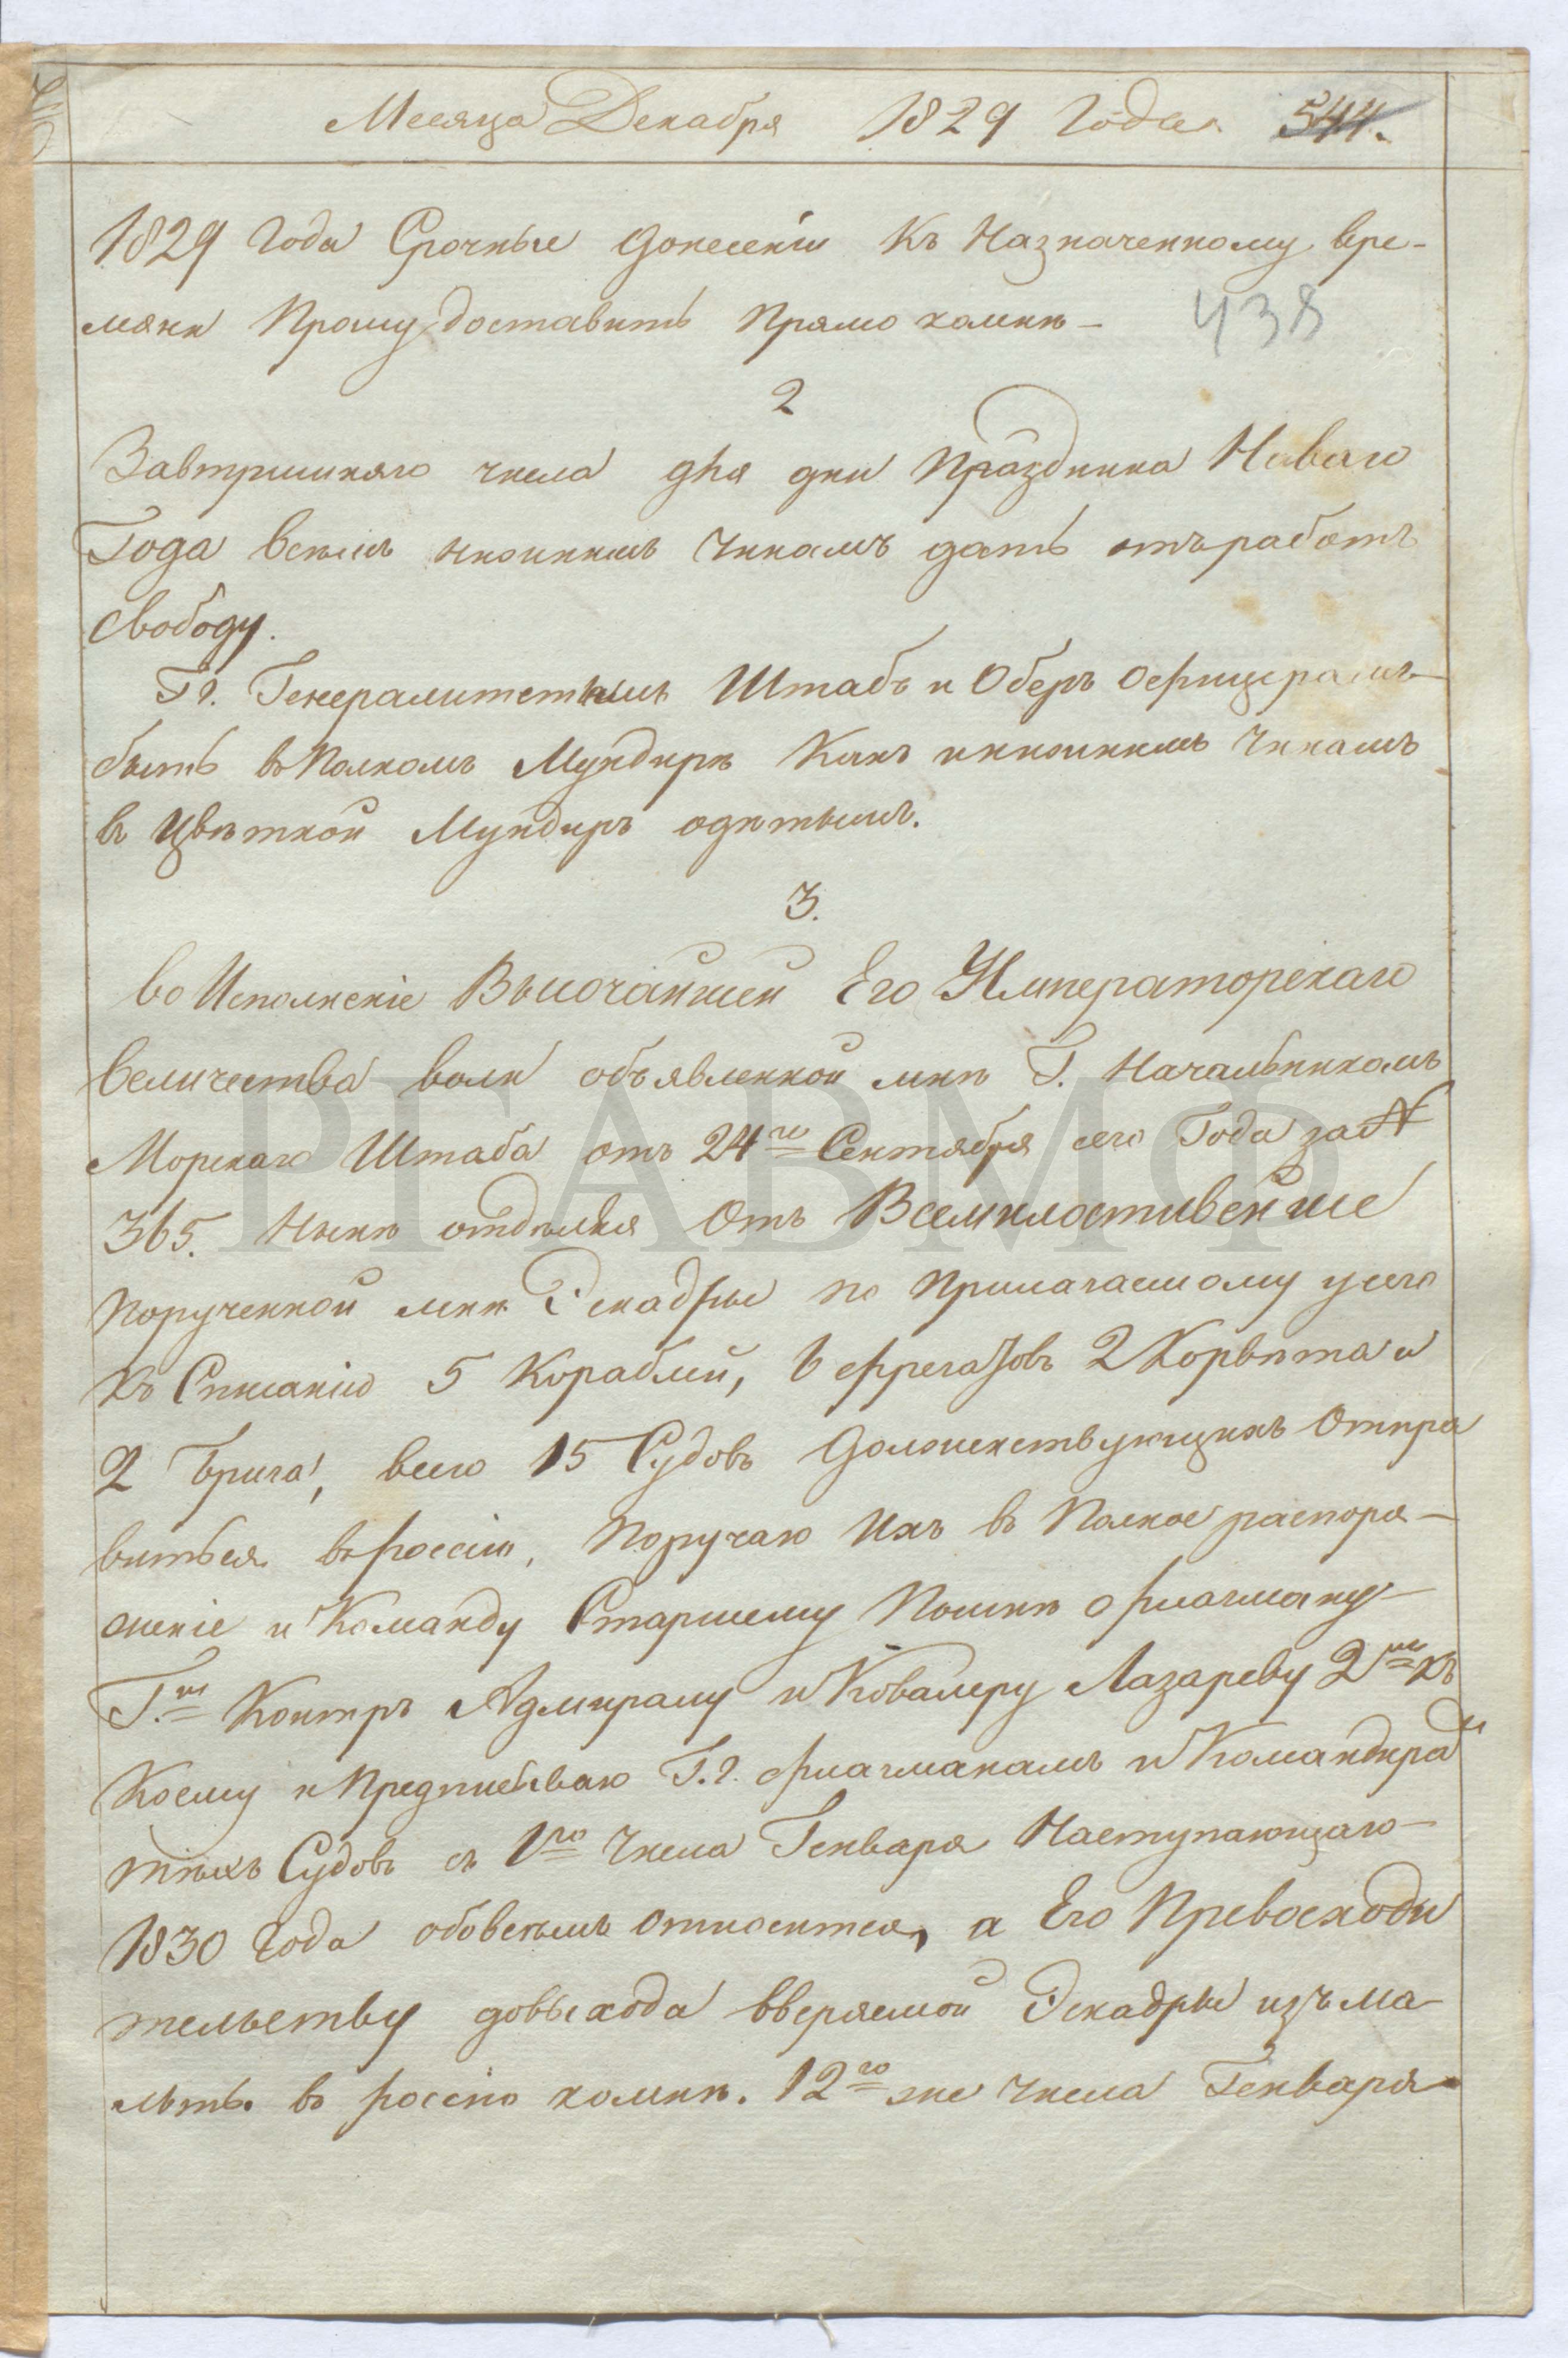 Месяца Декабря 1829 Года. 544.
1829 Года Срочные донесеніи Къ Назначенному вре-
мяни Прошу доставить Прямо комнѣ -
438
2
Завтришняго числа для дни Праздника Новаго
Года всѣмъ нижнимъ Чинамъ дать отъработъ
Свободу.
Гг. Генералитетнымъ Штабъ и Оберъ Офицерамъ
быть вПолномъ Мундирѣ Какъ инижнимъ Чинамъ
въ Цвѣтной Мундиръ одѣтымъ.
3.
во Исполненіе Высочайшей Его Императорскаго
величества воли объявленной мнѣ Г. Начальникомъ
Морскаго Штаба отъ 24го Сентября сего Года за N
365. Нынѣ отдѣляя Отъ Всемилостивейше
порученной мнѣ Эскадры по Прилагаемому усего
къ Списанію 5 Кораблей, 6 фрегатовъ 2 Корвѣта и
2 Брига, всего 15 Судовъ Долженствующихъ Отпра
виться вроссію, Поручаю Ихъ въ Полное распоря-
женіе и Команду Старшему Помнѣ Флагману
Г.ну Контръ Адмиралу и Ковалеру Лазареву 2му къ
Коему и Предписываю Г.г. флагманамъ и Командирамъ
тѣхъ Судовъ съ 1го Числа Генваря Наступающаго
1830 Года обовсемъ относится, а Его Превосходи
тельству довыхода вверяемой Эскадры изъ ма-
льты въ россію комнѣ. 12го же Числа Генваря
РГАВМФ